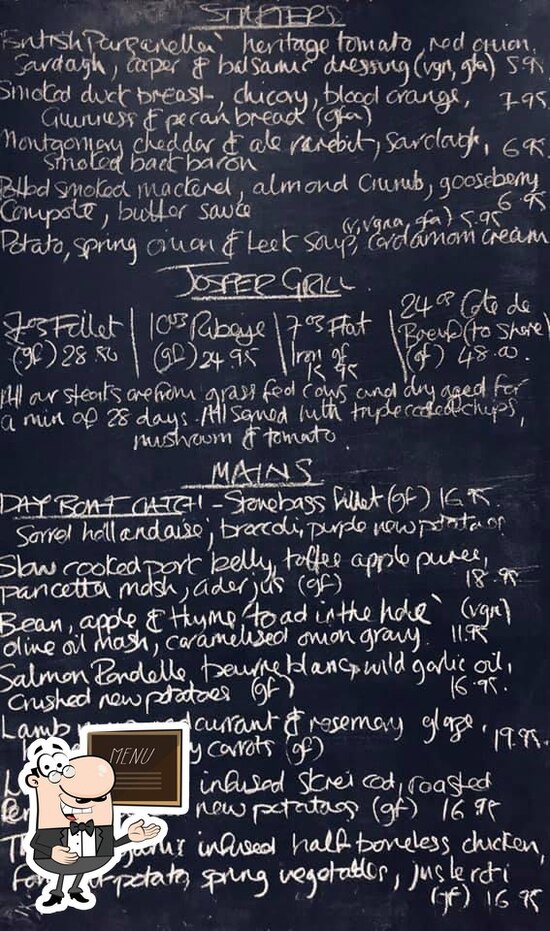 STARTERS
British Panzanella, heritage tomato, red onion,
Sardagh, caper & balsamic dressing (vgn, gfa) 5.95
Smoked duck breast, chicory, blood orange, 7.95
Guinness & pecan bread (gfa)
Montgomery cheddar & ale rarebit, Sardagh, 6.95
Smoked back bacon
Potted smoked mackerel, almond crumb, gooseberry
Compote, butter sauce 6.95
(v, vgna, gfa) 5.95
Potato, spring onion & leek soup, cardamom cream
JOSPER GRILL
7oz Fillet
(gf) 28.50
10oz Ribeye
(gf) 24.95
7oz Flat
Iron gf
15.95
24oz Cote de
Boeuf (to share)
(gf) 48.00
All our steaks are from grass fed cows and dry aged for
a min of 28 days. All served with triple cooked chips,
mushroom & tomato
MAINS
DAY BOAT CATCH - Stonebass fillet (gf) 16.95
Sorrel hollandaise, broccoli, purple new potatoes
Slow cooked pork belly, toffee apple puree,
pancetta mash, cider jus (gf) 18.95
Bean, apple & thyme 'toad in the hole' (vgn)
olive oil mash, caramelised onion gravy 11.95
Salmon Rondelle, beurre blanc, wild garlic oil,
crushed new potatoes (gf) 16.95.
Lamb currant & rosemary glaze, 19.95.
carrots (gf)
MENU
infused skrei cod, roasted
new potatoes (gf) 16.95
infused half boneless chicken,
potato, spring vegetables, jus leroti
(gf) 16.95